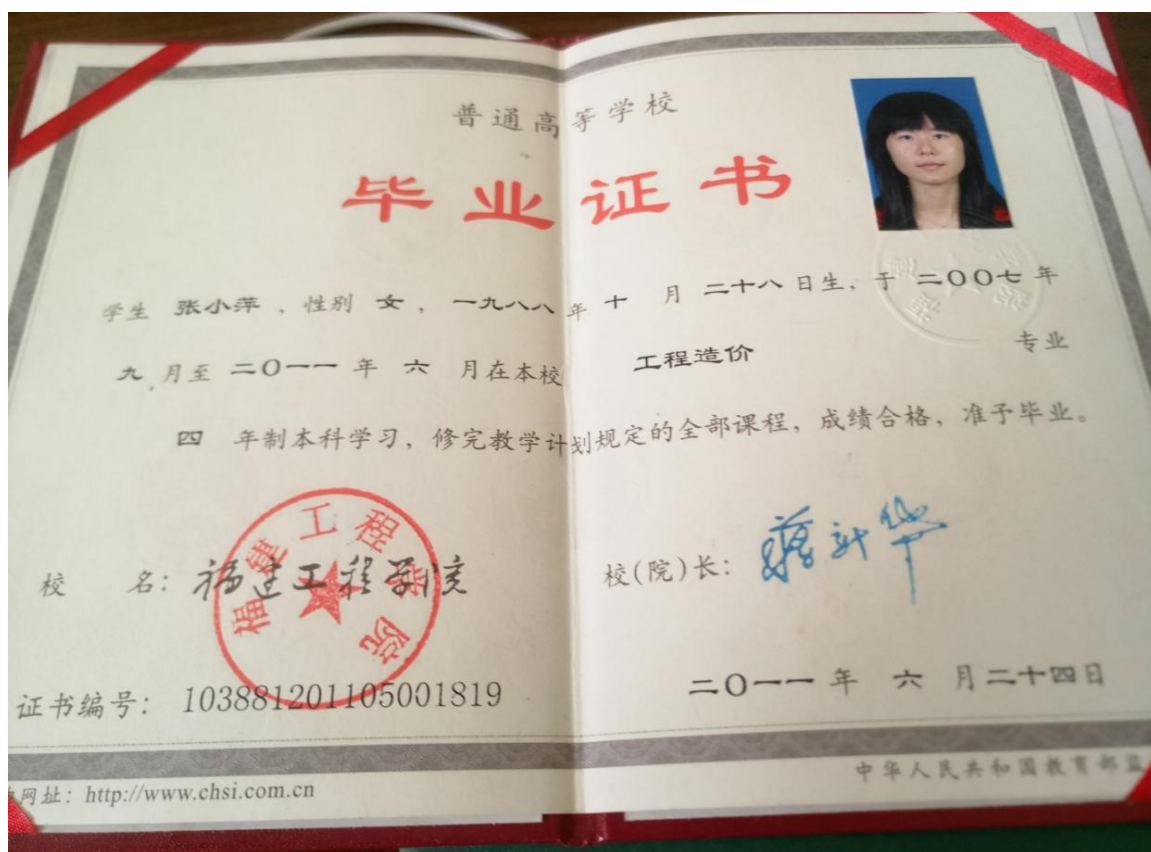 普通高等学校
毕业证书
学生 张小萍 ，性别 女 ，一九八八 年 十 月 二十八 日生，于 二〇〇七 年
九 月至 二〇一一 年 六 月在本校 工程造价 专业
四 年制本科学习，修完教学计划规定的全部课程，成绩合格，准予毕业。
福建工程学院
校 名：福建工程学院
校(院)长：蒋新华
证书编号：103881201105001819
二〇一一 年 六 月二十四日
网址：http://www.chsi.com.cn
中华人民共和国教育部监